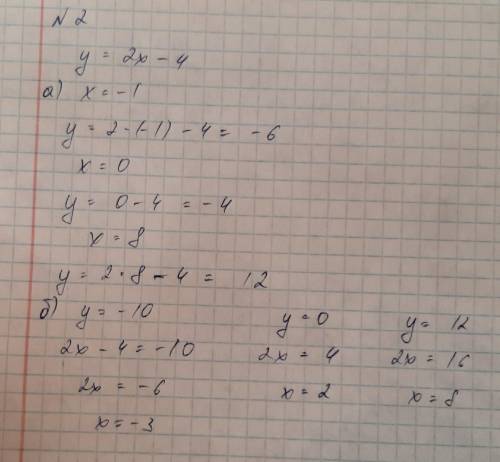 № 2
y = 2x - 4
а) x = -1
y = 2·(-1) - 4 = -6
x = 0
y = 0 - 4 = -4
x = 8
y = 2·8 - 4 = 12
б) y = -10 y = 0 y = 12
2x - 4 = -10 2x = 4 2x = 16
2x = -6 x = 2 x = 8
x = -3